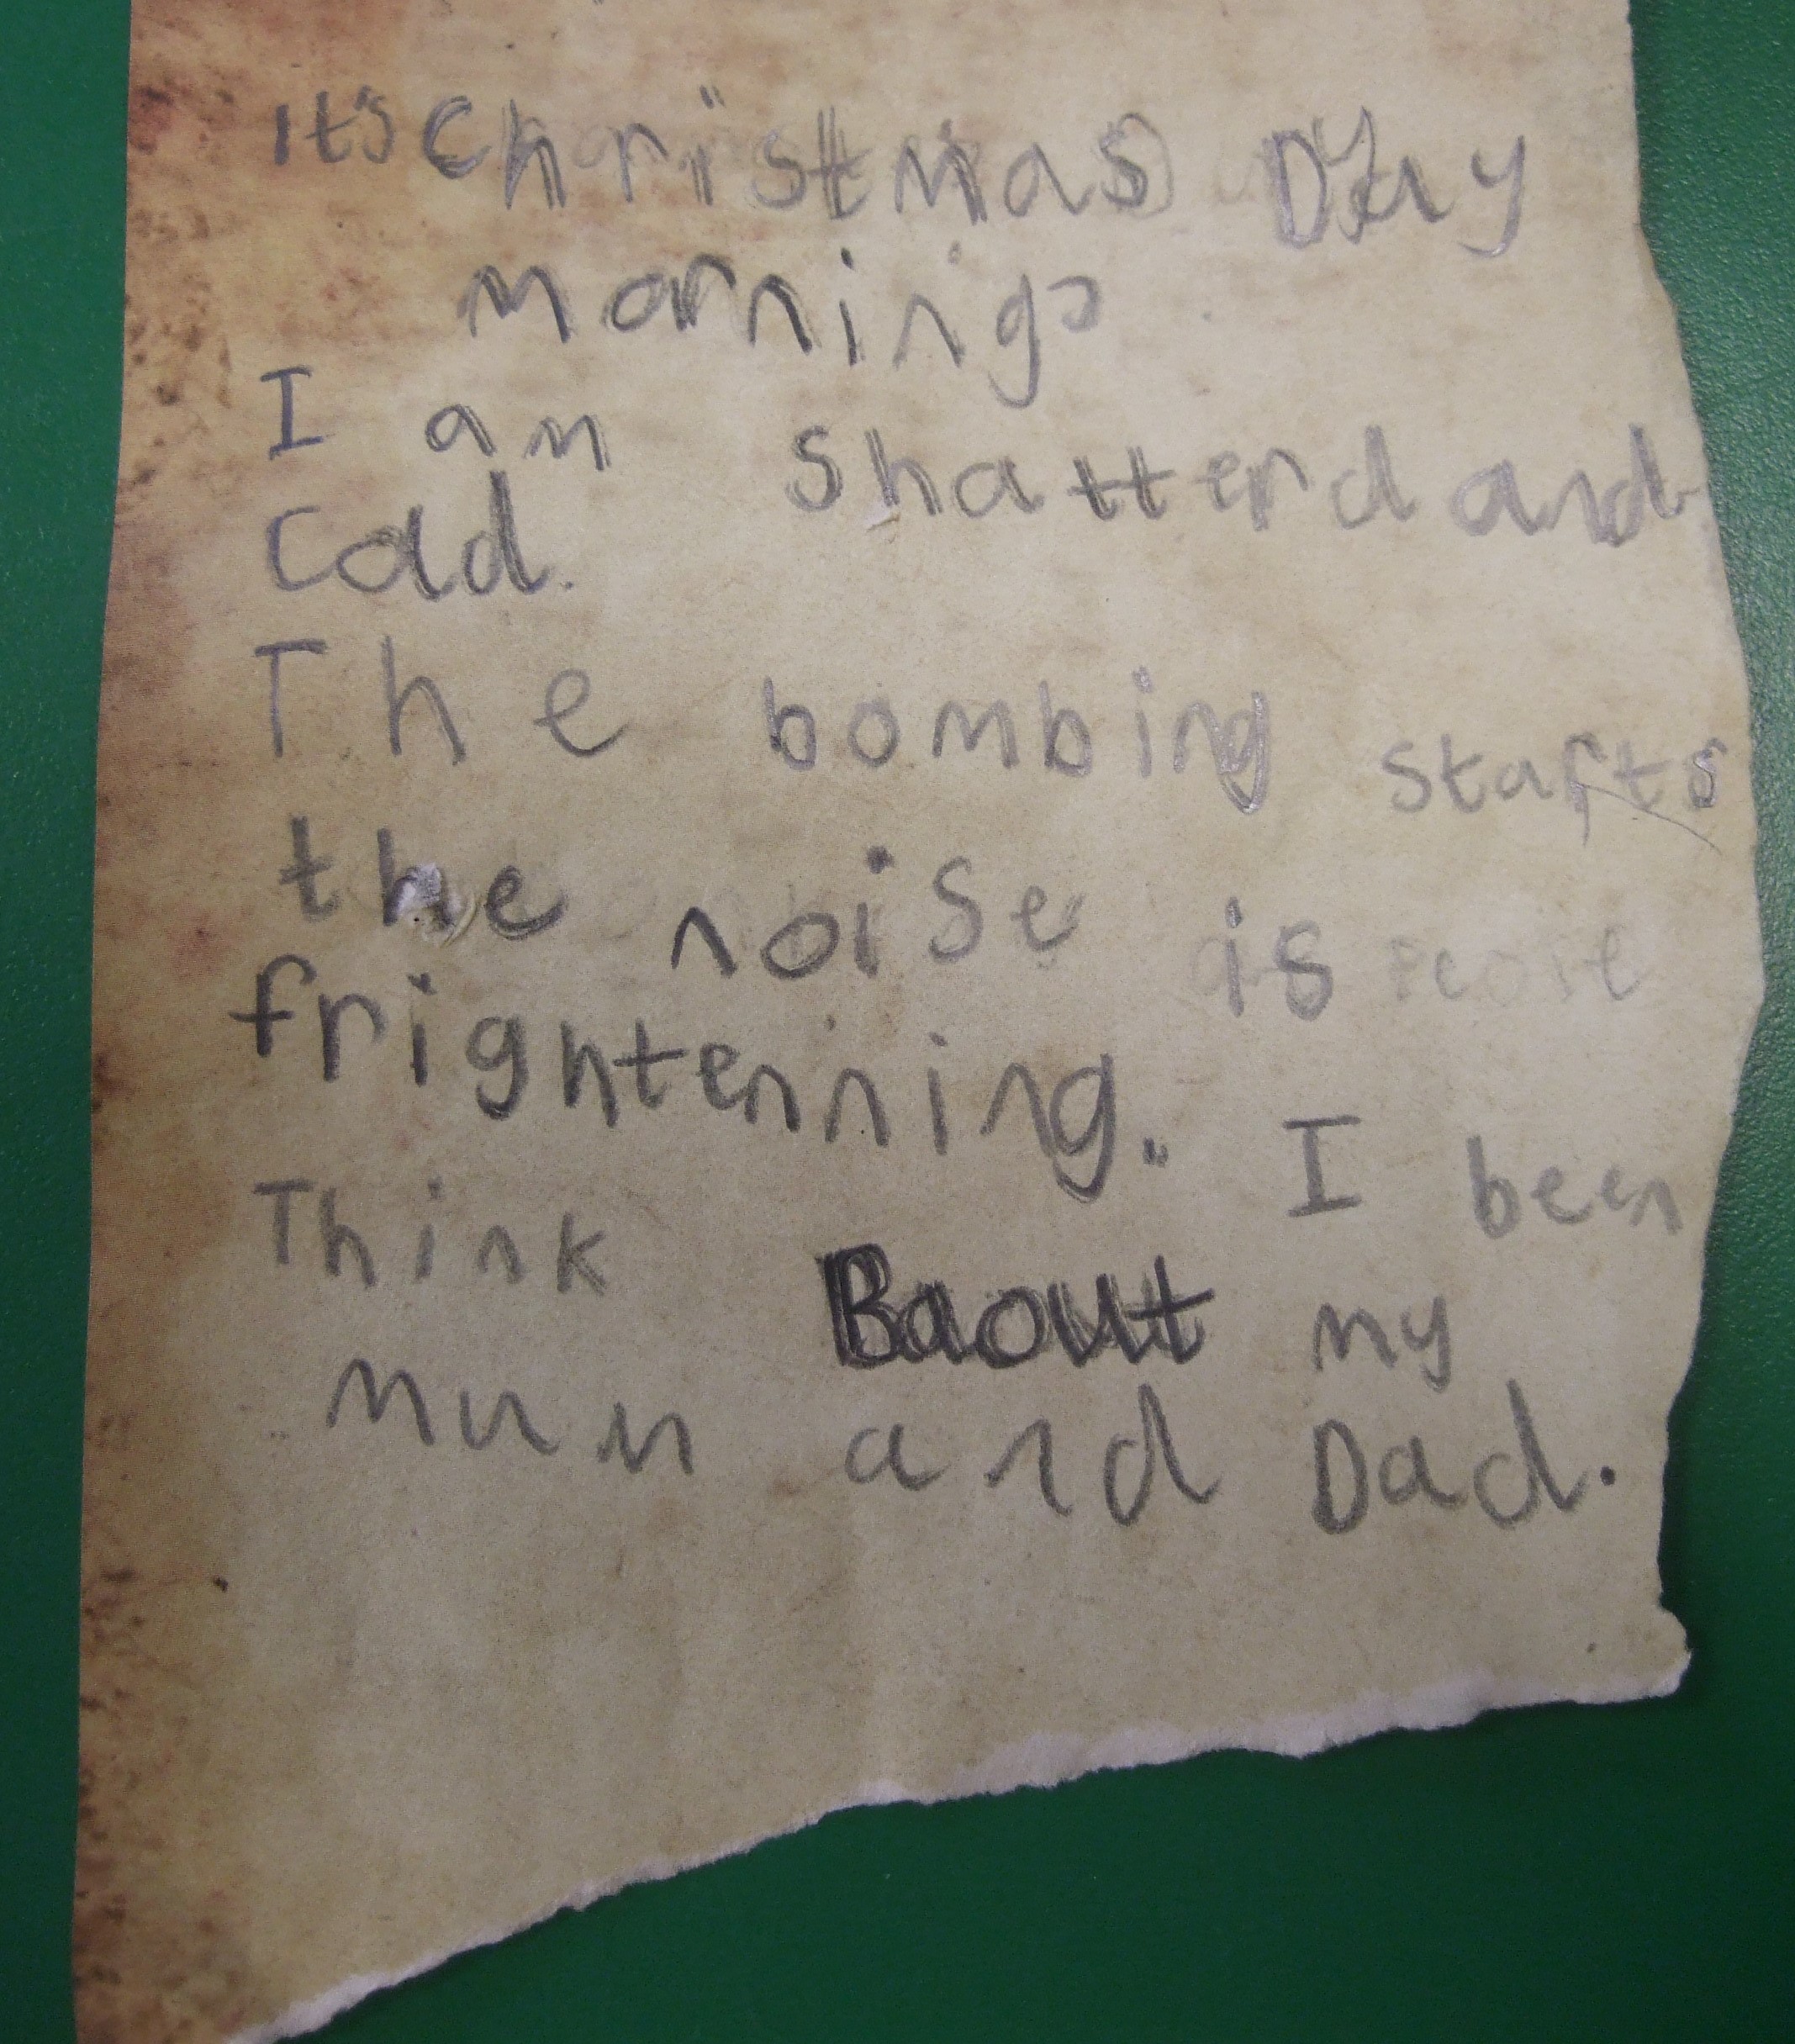 It's Christmas Day
morning
I am shatterd and
cold.
The bombing starts
the noise is
frightenning. I been
Think Baout my
mum and Dad.